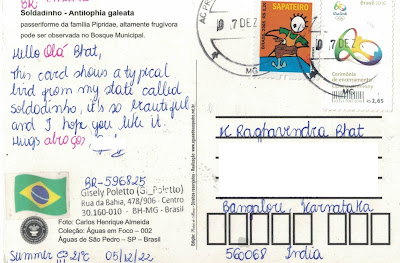 Soldadinho - Antilophia galeata
passeriforme da família Pipridae, altamente frugívora
pode ser observada no Bosque Municipal.
Hello Olá Bhat,
This card shows a typical
bird from my state called
soldadinho, it's so beautiful
and I hope you like it.
Hugs abraços,
BR-596825
Gisely Poletto (Gi_Poletto)
Rua da Bahia, 478/906 - Centro
30.160-010 - BH-MG - Brasil
Foto: Carlos Henrique Almeida
Coleção: Águas em Foco - 002
Águas de São Pedro - SP - Brasil
Summer 21°C 05/12/22
SAPATEIRO
7 DEZ
MG
7 DEZ
MG
Brasil 2016
Rio2016
Cerimônia
de encerramento
R$ 2,85
K Raghavendra Bhat
Bangalore, Karnataka
560068 India